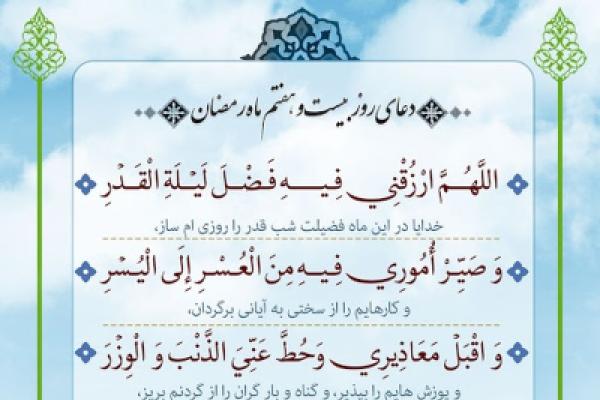 دعای روز بیست و هفتم ماه رمضان
اللَّهُمَّ ارْزُقْنِي فِيهِ فَضْلَ لَيْلَةِ الْقَدْرِ
خدایا در این ماه فضیلت شب قدر را روزی ام ساز،
وَ صَيِّرْ أُمُورِي فِيهِ مِنَ الْعُسْرِ إِلَى الْيُسْرِ
و کارهایم را از سختی به آیانی برگردان،
وَ اقْبَلْ مَعَاذِيرِي وَحُطَّ عَنِّيَ الذَّنْبَ وَ الْوِزْرَ
و پوزش هایم را بپذیر، و گناه و بار گران را از گردنم بریز،